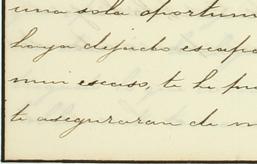 una sola oportun
haya dejado escapa
mui escaso, te he pr
te aseguraran de m